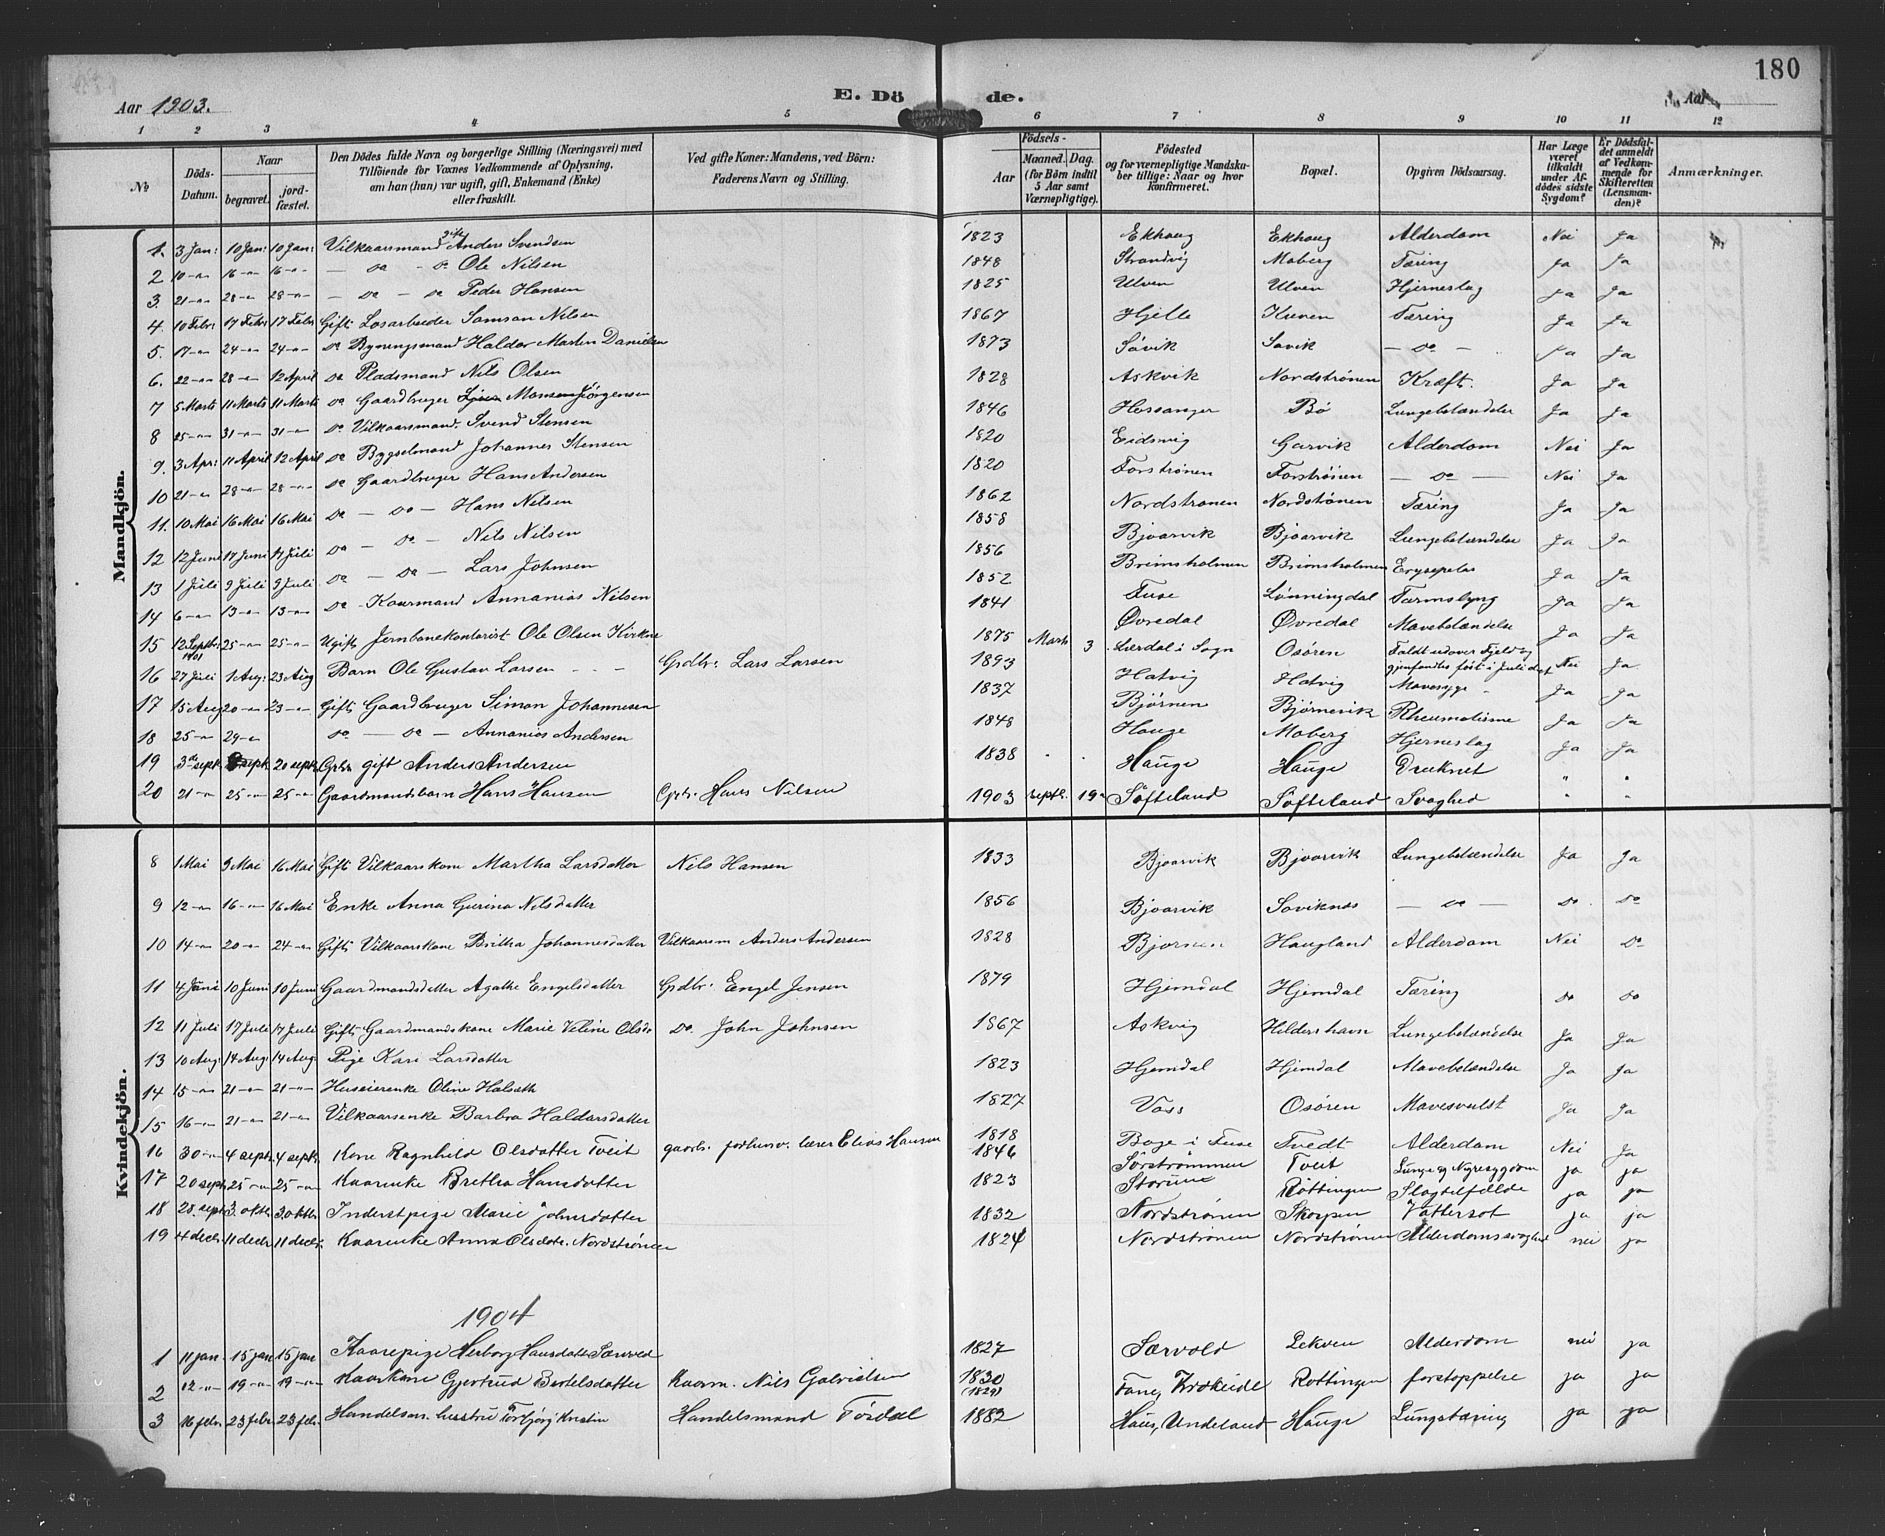 180
E. Döde.
Aar 1903.
Aar
1 2 3 4 5 6 7 8 9 10 11 12
No
Döds-Datum.
Naar
begravet.
jord-fæstet.
Den Dödes fulde Navn og borgerlige Stilling (Næringsvei) med Tilföiende for Voxnes Vedkommende af Oplysning, om han (hun) var ugift, gift, Enkemand (Enke) eller fraskilt.
Ved gifte Koner: Mandens, ved Börn: Faderens Navn og Stilling.
Födsels-
Aar
Maaned. Dag. (for Börn indtil 5 Aar samt Værnepligtige).
Födested og for værnepligtige Mandskaber tillige: Naar og hvor konfirmeret.
Bopæl.
Opgiven Dödsaarsag.
Har Læge været tilkaldt under Afdödes sidste Sygdom?
Er Dödsfaldet anmeldt af Vedkommende for Skifteretten (Lensmanden)?
Anmærkninger.
Mandkjön.
1. 3 Jan: 10 Jan: 10 Jan: Vilkaarsmand gift Anders Svendsen 1823 Ekhaug Ekhaug Alderdom Nei Ja
2 10 -"- 16 -"- 16 -"- — do - do Ole Nilsen 1848 Strandvig Moberg Tæring Ja Ja
3. 21 -"- 28 -"- 28 -"- — do — do Peder Hansen 1825 Ulven Ulven Hjerneslag Ja Ja
4. 10 Febr: 17 Febr 17 Febr Gift Losarbeider Samson Nilsen 1867 Hjelle Kuven Tæring Ja Ja
5. 17 -"- 24 -"- 24 -"- do Bygningsmand Haldor Martin Danielsen 1873 Søvik Søvik — do — Ja Ja
6. 22 -"- 28 -"- 12 April do Pladsmand Nils Olsen 1828 Askvik Nordstrønen Kræft. Ja Ja
7 5 Marts 11 Marts 31 Marts do Gaardbruger Mons Jörgensen 1846 Hessanger Bø Lungebetændelse Ja Ja
8 25 -"- 31 -"- 31 -"- do Vilkaarsmand. Svend Stensen 1820 Eidsvig Garvik Alderdom Nei Ja
9. 3 Apr: 11 April 12 April do Bygselmand Johannes Stensen 1820 Forstrønen Forstrønen — do — Nei Ja
10 21 -"- 28 -"- 28 -"- do Gaardbruger Hans Andersen 1862 Nordstrønen Nordstrønen Tæring Ja Ja
11. 10 Mai 16 Mai 16 Mai do — do — Hans Nilsen 1858 Bjoarvik Bjoarvik Lungebetændelse Ja Ja
12 12 Juni 17 Juni 17 Juli do — do — Nils Nilsen 1856 Brimsholmen Brimsholmen Erysepelas Ja Ja
13 1 Juli 9 Juli 9 Juli do — do — Lars Johnsen 1852 Fuse Lønningdal Tarmslyng Ja Ja
14 6 -"- 13 -"- 13 -"- do Kaarmand Annanias Nilsen 1841 Øvredal Øvredal Mavebetændelse Ja Ja
15 12 Septbr: 1901 25 -"- 25 -"- Ugift Jernbanekontorist Ole Olsen Kirkne 1875 Marts 3 Lærdal i Sogn Osøren Faldt udover Fjeld og gjenfandtes først i Juli d.a. Nei Ja
16 27 Juli 1 Aug: 23 Aug Barn Ole Gustav Larsen Grdbr. Lars Larsen 1893 Hatvig Hatvig Mavesyge Ja Ja
17 15 Aug 20 -"- 23 -"- Gift Gaardbruger Simon Johannesen 1837 Bjørnen Bjørnevik Rheumatisme Ja Ja
18 25 -"- 29 -"- do — do — Annanias Andersen 1848 Hauge Moberg Hjerneslag Ja Ja
19 3die sept. sept. 20 sept. Grbr. gift Anders Andersen 1838 Hauge Hauge Druknet " "
20 21 -"- 25 -"- 25 -"- Gaardmandsbarn Hans Hansen Grbr. Hans Nilsen 1903 septbr. 19 Søfteland Søfteland Svaghed " "
Kvindekjön.
8 1 Mai 9 Mai 16 Mai Gift Vilkaarskone Martha Larsdatter Nils Hansen 1833 Bjoarvik Bjoarvik Lungebetændelse Ja Ja
9 12 -"- 16 -"- 16 Mai Enke Anna Gurina Nilsdatter 1856 Bjoarvik Søviknes — do — do do
10 14 -"- 20 -"- 24 -"- Gift Vilkaarskone Britha Johannesdatter Vilkaarsm Anders Andersen 1828 Bjørnen Haugland Alderdom Nei Do
11 4 Juni 10 Juni 10 Juni Gaardmandsdatter Agathe Engelsdatter Grdbr. Engel Jensen 1879 Hjemdal Hjemdal Tæring do do
12 11 Juli 17 Juli 17 Juli Gift Gaardmandskone Marie Veline Olsdr Do. John Johnsen 1867 Askvig Hildershavn Lungebetændelse Ja Ja
13 10 Aug: 14 Aug: 14 Aug: Pige Kari Larsdatter 1823 Hjemdal Hjemdal Mavebetændelse Ja Ja
14 15 -"- 21 -"- 21 -"- Huseierenke Oline Halseth 1827 Voss Osøren Mavesvulst Ja Ja
15 16 -"- 21 -"- 21 -"- Vilkaarsenke Barbra Haldorsdatter 1818 Boge i Fuse Tvedt Alderdom Nei Ja
16 30 -"- 4 sept. 4 sept. Kone Ragnhild Olsdatter Tveit gaardbr. forhenv. lærer Elias Hansen 1846 Sørstrømmen Tveit Lunge og Nyresygdom ja ja
17 20 sept. 25 -"- 25 -"- Kaarenke Britha Hansdatter 1823 Storum Røttingen Slagtilfælde ja ja
18 28. sept. 3. oktbr. 3. oktbr. Inderstpige Marie Johnsdatter 1832 Nordstrønen Skorpen Vattersot ja ja
19 4 decbr. 11 decbr. 11 decbr. Kaarenke Anna Olsdatr. Nordstrønen 1824 Nordstrønen Nordstrønen Alderdomssvaghed nei ja
1904
1 11 jan 15 jan 15 jan Kaarepige Herborg Hansdatter Særvold 1827 Særvold Lekven Alderdom nei ja
2 12 -"- 19 -"- 19 -"- Kaarkone Gjertrud Bertelsdatter Kaarm. Nils Gabrielsen 1830 (1829) Fane, Krokeide Røttingen forstoppelse ja ja
3 16 febr. 23 febr. 23 febr. Handelsm. hustru Torbjørg Kristin Handelsmand Tørdal 1882 Haus, Undeland Hauge Lungetæring ja ja